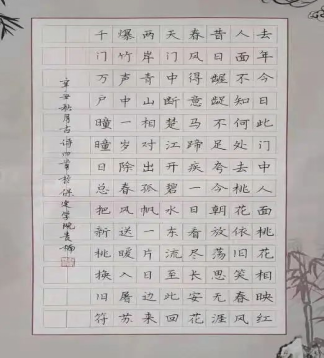 去年今日此门中人面桃花相映红
人面不知何处去桃花依旧笑春风
昔日龌龊不足夸今朝放荡思无涯
春风得意马蹄疾一日看尽长安花
天门中断楚江开碧水东流至此回
两岸青山相对出孤帆一片日边来
爆竹声中一岁除春风送暖入屠苏
千门万户曈曈日总把新桃换旧符
辛丑秋月古诗四首於保定学院